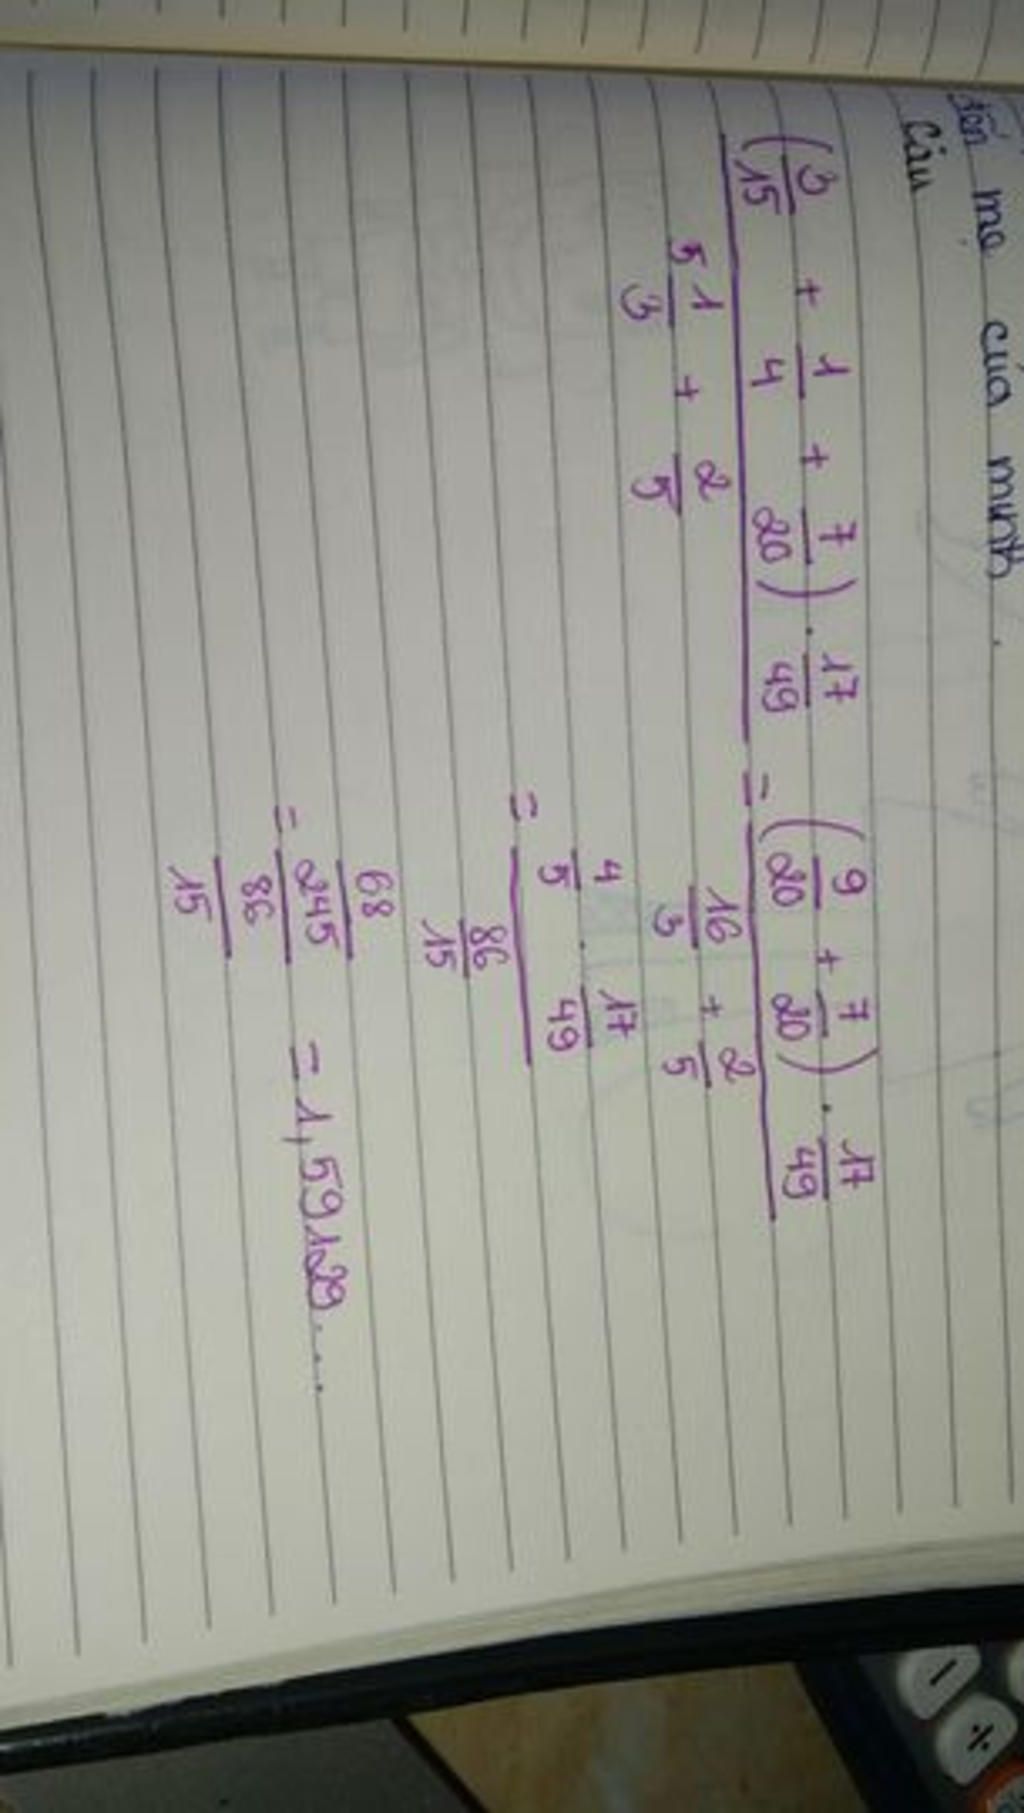 mẹ của mình.
Câu
(3/15 + 1/4 + 7/20) . 17/49 / 5 1/3 + 2/5 = (9/20 + 7/20) . 17/49 / 16/3 + 2/5
= 4/5 . 17/49 / 86/15
= 68/245 / 86/15 = 1,59129....
- ÷